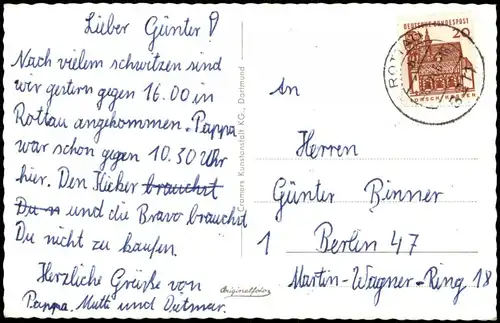 Lieber Günter!
Nach vielem schwitzen sind
wir gestern gegen 16.00 in
Rottau angekommen. Pappa
war schon gegen 10.30 Uhr
hier. Den Kicker brauchst
Du n und die Bravo brauchst
Du nicht zu kaufen.
Herzliche Grüße von
Pappa. Mutti und Dietmar.
Cramers Kunstanstalt KG., Dortmund
Originalfoto
DEUTSCHE BUNDESPOST
20
LORSCH HESSEN
ROTTAU
An
Herren
Günter Binner
1 Berlin 47
Martin-Wagner-Ring 18